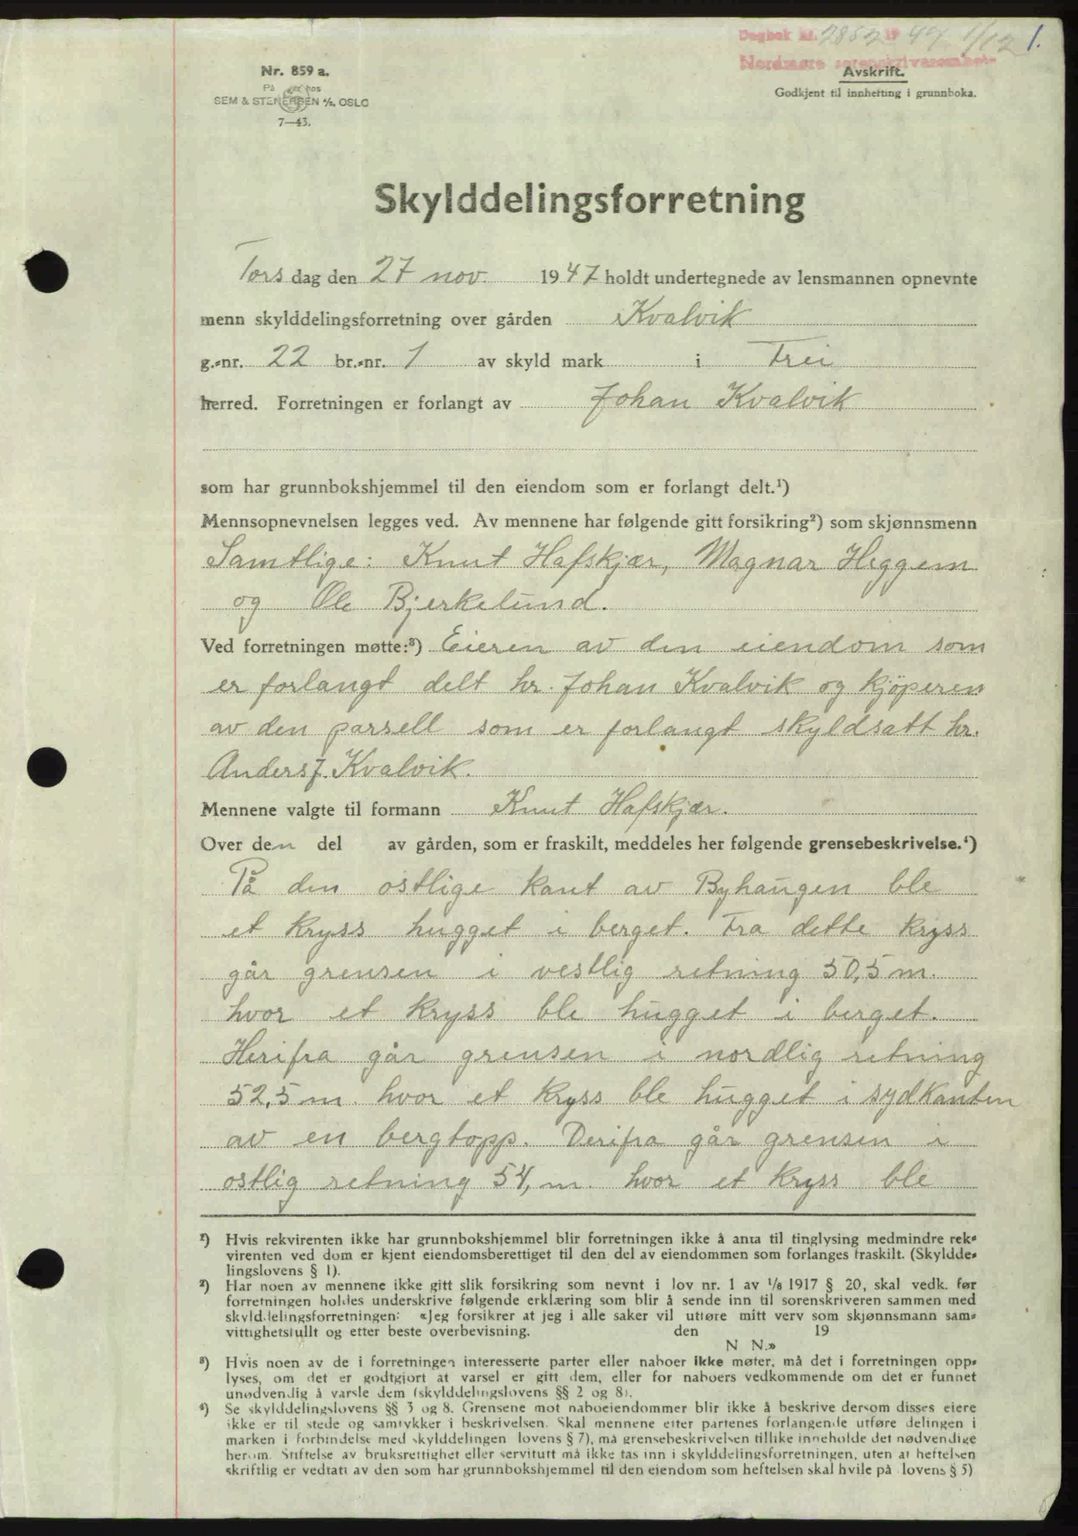 Dagbok nr. 2852 1947 1/12 1.
Nordmøre sorenskriverembete
Nr. 859 a.
SEM & STENERSEN A/S. OSLO
7—43.
Avskrift.
Godkjent til innhefting i grunnboka.
Skylddelingsforretning
Torsdag den 27 nov. 1947 holdt undertegnede av lensmannen opnevnte
menn skylddelingsforretning over gården Kvalvik
g.-nr. 22 br.-nr. 1 av skyld mark i Frei
herred. Forretningen er forlangt av Johan Kvalvik
som har grunnbokshjemmel til den eiendom som er forlangt delt.¹)
Mennsopnevnelsen legges ved. Av mennene har følgende gitt forsikring²) som skjønnsmenn
Samtlige: Knut Hafskjær, Magnar Heggem
og Ole Bjerkelund.
Ved forretningen møtte:³) Eieren av den eiendom som
er forlangt delt hr. Johan Kvalvik og kjöperen
av den parsell som er forlangt skyldsatt hr.
Anders J. Kvalvik.
Mennene valgte til formann Knut Hafskjær.
Over den del av gården, som er fraskilt, meddeles her følgende grensebeskrivelse.⁴)
På den ostlige kant av Byhaugen ble
et kryss hugget i berget. Fra dette kryss
går grensen i vestlig retning 50,5 m.
hvor et kryss ble hugget i berget.
Herifra går grensen i nordlig retning
52,5 m. hvor et kryss ble hugget i sydkanten
av en bergtopp. Derifra går grensen i
ostlig retning 54, m. hvor et kryss ble
¹) Hvis rekvirenten ikke har grunnbokshjemmel blir forretningen ikke å anta til tinglysing medmindre rek-
virenten ved dom er kjent eiendomsberettiget til den del av eiendommen som forlanges fraskilt. (Skyldde-
lingslovens § 1).
²) Har noen av mennene ikke gitt slik forsikring som nevnt i lov nr. 1 av 1/6 1917 § 20, skal vedk. før
forretningen holdes underskrive følgende erklæring som blir å sende inn til sorenskriveren sammen med
skylddelingsforretningen: «Jeg forsikrer at jeg i alle saker vil utføre mitt verv som skjønnsmann sam-
vittighetsfullt og etter beste overbevisning. den 19
N N.»
³) Hvis noen av de i forretningen interesserte parter eller naboer ikke møter, må det i forretningen opp-
lyses, om det er godtgjort at varsel er gitt dem, eller for naboers vedkommende om det er funnet
unødvendig å varsle dem (skylddelingslovens §§ 2 og 8).
⁴) Se skylddelingslovens §§ 3 og 8. Grensene mot naboeiendommer blir ikke å beskrive dersom disses eiere
ikke er til stede og samtykker i beskrivelsen. Skal mennene etter partenes forlangende utføre delingen i
marken i forbindelse med skylddelingen lovens § 7), må grensebeskrivelsen tillike inneholde det nødvendige
herom. Stiftelse av bruksrettighet eller servitutt må ikke tas inn i skylddelingsforretningen, uten at heftelsen
skriftlig er vedtatt av den som har grunnbokshjemmel til den eiendom som heftelsen skal hvile på lovens § 5)